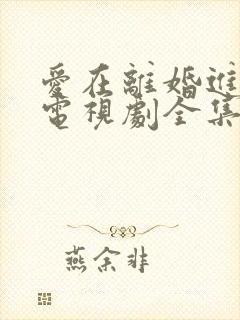 愛在離婚進
電視劇全集
燕余非